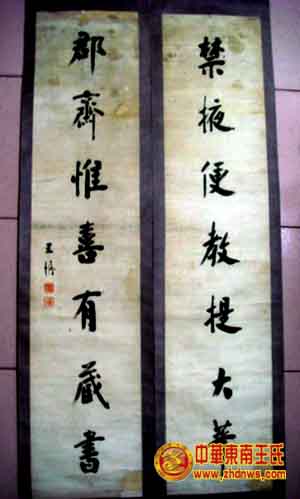 禁掖便教提大筆
郡齋惟喜有藏書
王
中華東南王氏
www.zhdnws.com